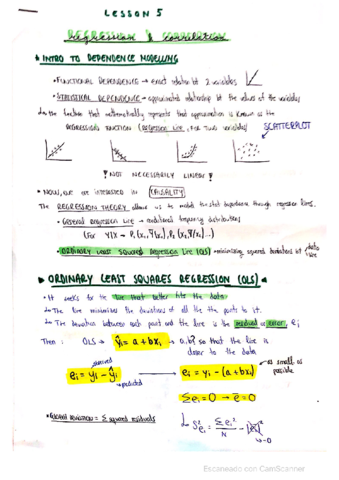 LESSON 5
REGRESSION & CORRELATION
INTRO TO DEPENDENCE MODELLING
• FUNCTIONAL DEPENDENCE → exact relation bt 2 variables
• STATISTICAL DEPENDENCE → approximated relationship bt the values of the variables
↳ the function that mathematically represents that approximation is known as the
REGRESSION FUNCTION (REGRESSION LINE, FOR TWO VARIABLES)
SCATTERPLOT
! NOT NECESSARILY LINEAR !
• NOW, we are interested in CAUSALITY
The REGRESSION THEORY allows us to model the stat dependence through regression lines.
• General Regression Line → conditioned frequency distributions
(For Y|X → P₁(x₁, ȳ|x₁), P₂(x₂, ȳ|x₂)...)
• ORDINARY LEAST SQUARES Regression Line (OLS) → minimizing squared deviations bt data line
ORDINARY LEAST SQUARES REGRESSION (OLS)
• It seeks for the line that better fits the data
↳ The line minimises the deviations of all the pts to it.
↳ The deviation between each point and the line is the residual or error, ei
Then: OLS → ŷi = a + bxi → a, b? so that the line is
closer to the data
observed
ei = yi - ŷi
predicted
→ ei = yi - (a + bxi)
as small as
possible
Σei = 0 → ē = 0
• GLOBAL DEVIATION = Σ squared residuals
↳ S²ei = Σei²/N - |ē|²
→ 0
Escaneado con CamScanner